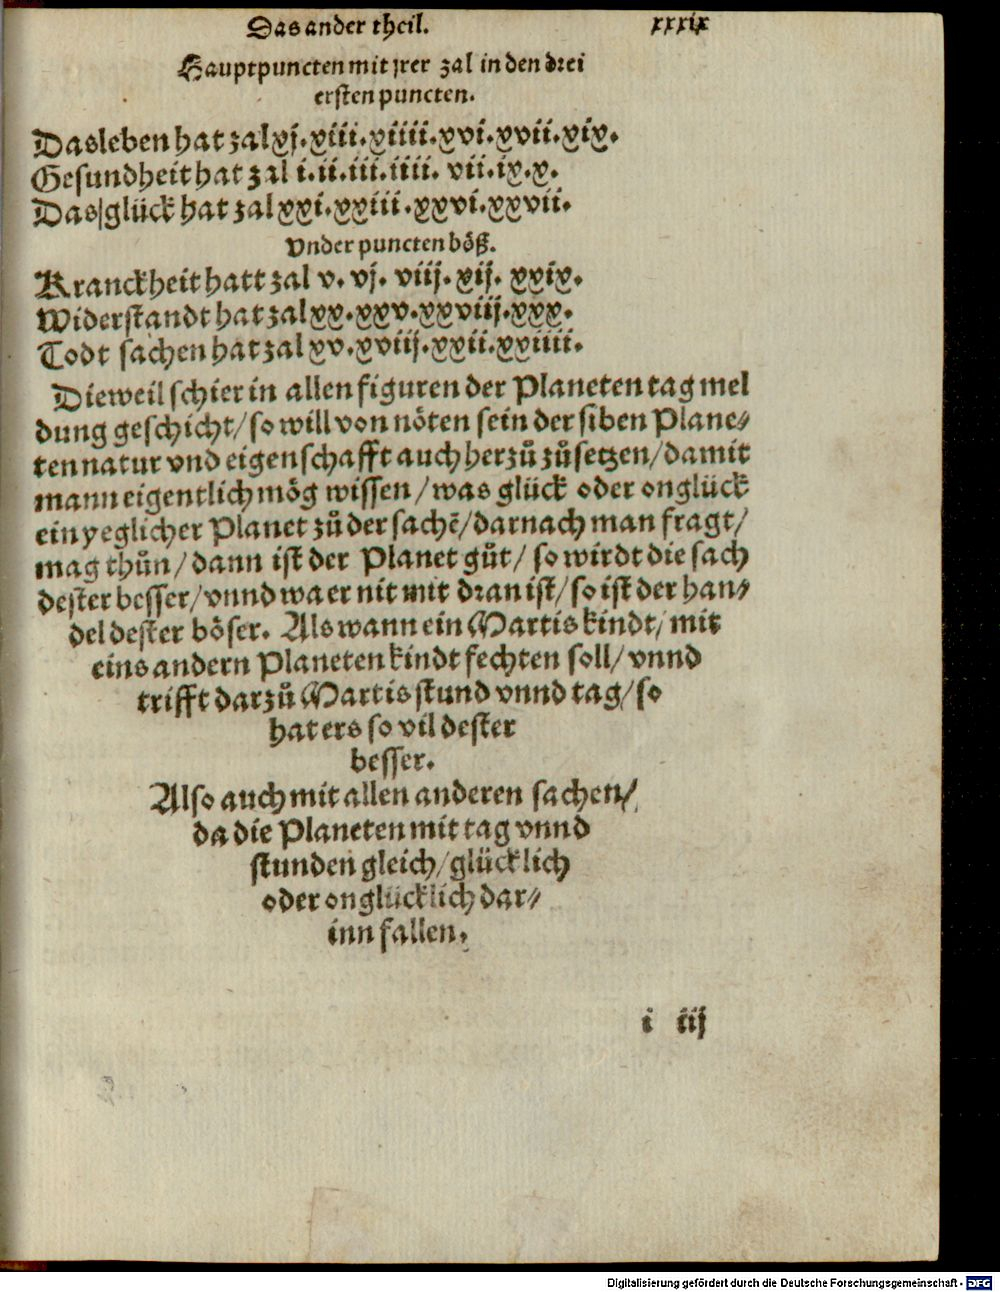 Das ander theil. xxxix
Hauptpuncten mit jrer zal in den drei
ersten puncten.
Das leben hat zal xj. xiii. xiiii. xvi. xvii. xix.
Gesundheit hat zal i. ii. iii. iiii. vii. ix. x.
Das glück hat zal xxi. xxiii. xxvi. xxvii.
Vnder puncten böß.
Kranckheit hatt zal v. vj. viij. xij. xxix.
Widerstandt hat zal xx. xxv. xxviij. xxx.
Todt sachen hat zal xv. xviij. xxii. xxiiii.
Dieweil schier in allen figuren der Planeten tag mel
dung geschicht/ so will von nöten sein der siben Plane⸗
ten natur vnd eigenschafft auch herzů zůsetzen/ damit
mann eigentlich mög wissen/ was glück oder onglück
ein yeglicher Planet zů der sachē/ darnach man fragt/
mag thůn/ dann ist der Planet gůt/ so wirdt die sach
dester besser/ vnnd wa er nit mit dran ist/ so ist der han⸗
del dester böser. Als wann ein Martis kindt/ mit
eins andern Planeten kindt fechten soll/ vnnd
trifft darzů Martis stund vnnd tag/ so
hat ers so vil dester
besser.
Also auch mit allen anderen sachen/
da die Planeten mit tag vnnd
stunden gleich/ glücklich
oder onglücklich dar⸗
inn fallen.
i iij
Digitalisierung gefördert durch die Deutsche Forschungsgemeinschaft - DFG